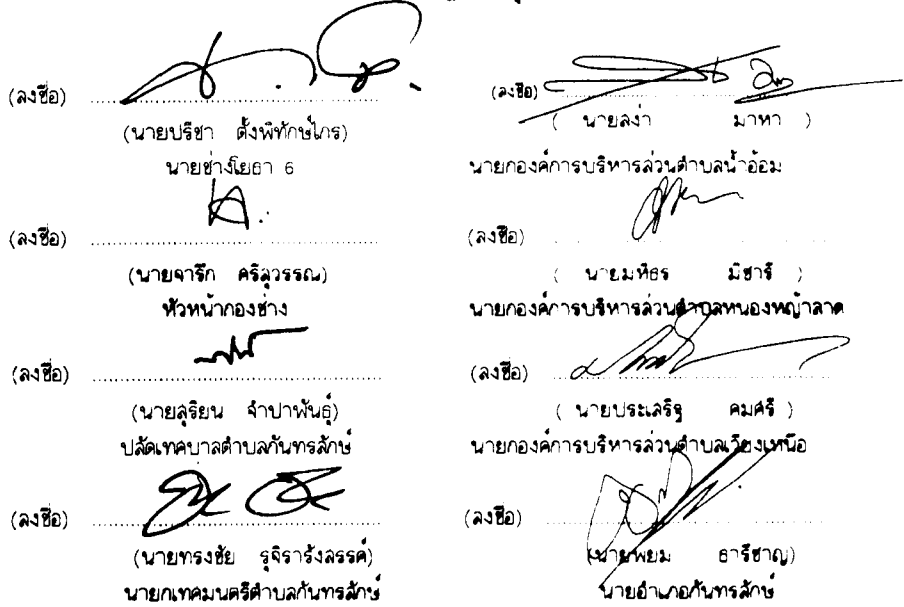 (ลงชื่อ)
(นายปรีชา ตั้งพิทักษ์ไกร)
นายช่างโยธา 6
(ลงชื่อ)
(นายจารึก ศรีสุวรรณ)
หัวหน้ากองช่าง
(ลงชื่อ)
(นายสุริยน จำปาพันธุ์)
ปลัดเทศบาลตำบลกันทรลักษ์
(ลงชื่อ)
(นายทรงชัย รุจิรารังสรรค์)
นายกเทศมนตรีตำบลกันทรลักษ์
(ลงชื่อ)
( นายสง่า มาหา )
นายกองค์การบริหารส่วนตำบลน้ำอ้อม
(ลงชื่อ)
( นายมหิธร มิชารี )
นายกองค์การบริหารส่วนตำบลหนองหญ้าลาด
(ลงชื่อ)
( นายประเสริฐ คมศรี )
นายกองค์การบริหารส่วนตำบลเวียงเหนือ
(ลงชื่อ)
(นายพยม ธารีชาญ)
นายอำเภอกันทรลักษ์